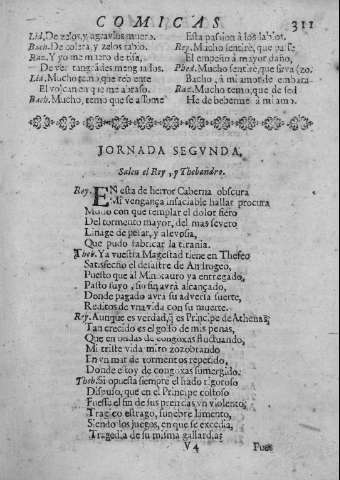 COMICAS. 311
Lid. De zelos, y agravios muero.
Bach. De colera, y zelos rabio.
Rac. Y yo me muero de risa,
De ver tan
Lid. Mucho temo, que rebente
El volcan en que me abraso.
Bach. Mucho, temo que se assome
Esta passion à los labios.
Rey. Mucho sentirè, que passe
El empeño à mayor daño,
Phed. Mucho sentirè, que sirva (zo.
Bacho, à mi amor de embara-
Rac. Mucho temo, que de sed
He de beberme à mi amo.
JORNADA SEGVNDA,
Salen el Rey, y Thebandro.
Rey. EN esta de horror Caberna obscura
Mi vengança insaciable hallar procura
Modo con que templar el dolor fiero
Del tormento mayor, del mas severo
Linage de pesar, y alevosia,
Que pudo fabricar la tirania.
Theb. Ya vuestra Magestad tiene en Theseo
Satisfecho el desastre de Androgeo,
Puesto que al Minotauro ya entregado,
Pasto suyo, sin avrà alcançado,
Donde pagado avrà su adversa suerte,
Reditos de vna vida con su muerte.
Rey. Aunque es verdad, q̃ es Principe de Athenas,
Tan crecido es el golfo de mis penas,
Que en ondas de congoxas fluctuando,
Mi triste vida miro zozobrando
En vn mar de tormentos repetido,
Donde estoy de congoxas sumergido.
Theb. Si opuesta siempre el hado rigoroso
Dispuso, que en el Principe costoso
Fuesse el fin de sus prendas vn violento,
Tragico estrago, funebre lamento,
Siendo los juegos, en que se excedia,
Tragedia de su misma gallardia;
V4 Pues